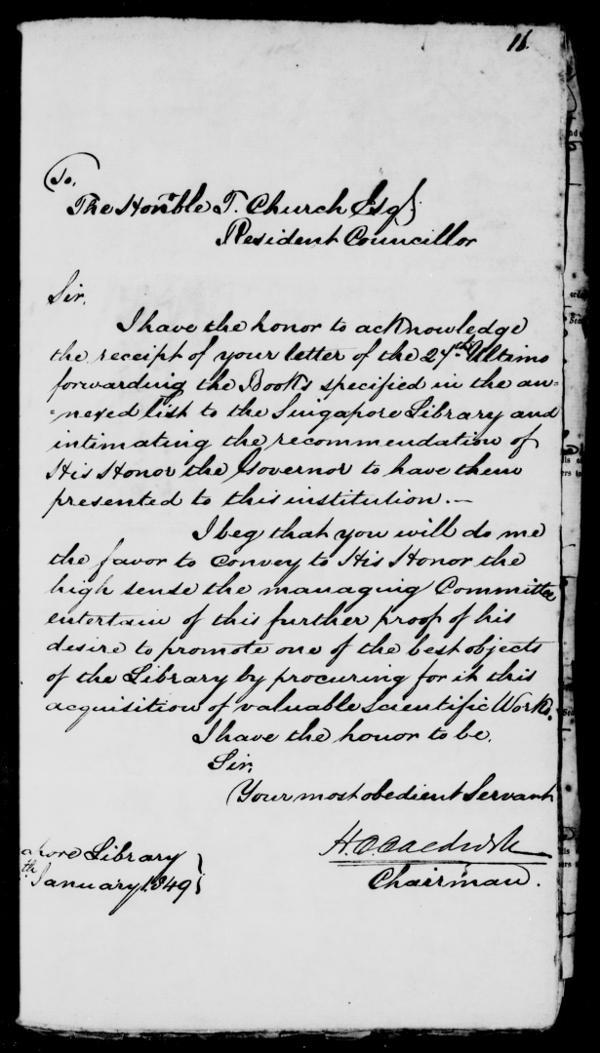 16.
To,
The Honble T. Church Esq
Resident Councillor
Sir,
I have the honor to acknowledge
the receipt of your letter of the 27th Ultimo
forwarding the Books specified in the an=
=nexed list to the Singapore Library and
intimating the recommendation of
His Honor the Governor to have them
presented to this institution. —
I beg that you will do me
the favor to convey to His Honor the
high sense the managing Committee
entertain of this further proof of his
desire to promote one of the best objects
of the Library by procuring for it this
acquisition of valuable Scientific Works.
I have the honor to be,
Sir,
Your most obedient Servant
Chairman.
apore Library
th January 1849